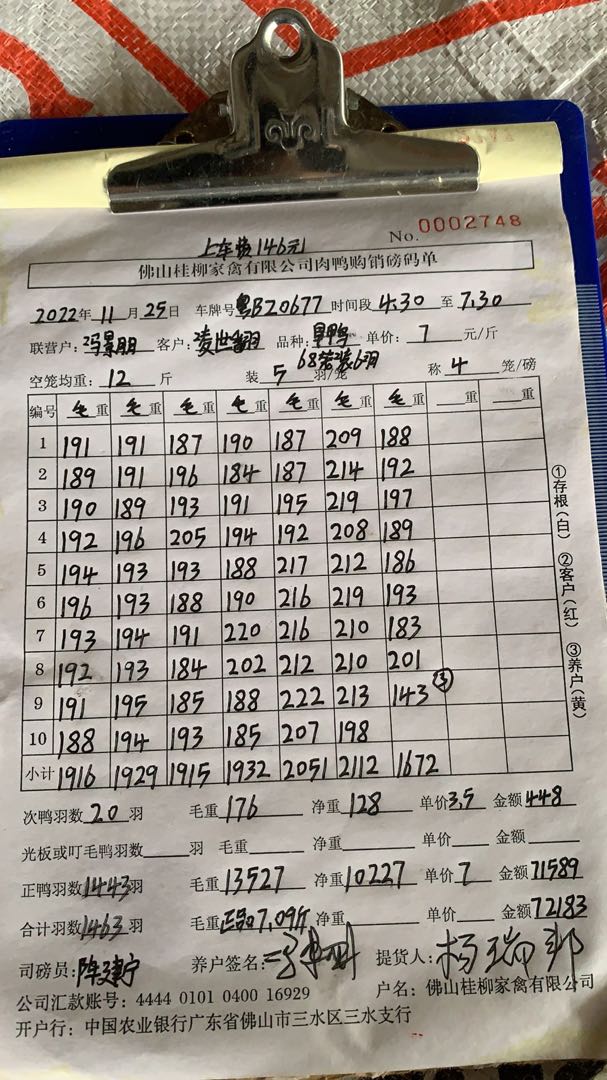 上车费146元
No. 0002748
佛山桂柳家禽有限公司肉鸭购销磅码单
2022年 11月 25日 车牌号粤BZ0677 时间段4:30 至 7:30
联营户：冯景朋 客户：凌世翻 品种：旱鸭 单价：7 元/斤
68笼装6羽
空笼均重：12 斤 装 5 羽/笼 称 4 笼/磅
编号 毛重 毛重 毛重 毛重 毛重 毛重 毛重 重 重
1 191 191 187 190 187 209 188
2 189 191 196 184 187 214 192
3 190 189 193 191 195 219 197
4 192 196 205 194 192 208 189
5 194 193 193 188 217 212 186
6 196 193 188 190 216 219 193
7 193 194 191 220 216 210 183
8 192 193 184 202 212 210 201
9 191 195 185 188 222 213 143 ③
10 188 194 193 185 207 198
小计 1916 1929 1915 1932 2051 2112 1672
①存根（白） ②客户（红） ③养户（黄）
次鸭羽数20羽 毛重176 净重128 单价3.5 金额448
光板或叮毛鸭羽数 羽 毛重 净重 单价 金额
正鸭羽数1443羽 毛重13527 净重10227 单价7 金额71589
合计羽数1463羽 毛重正品7.09斤 净重 单价 金额72183
司磅员：陈建宁 养户签名： 提货人：杨瑞邦
公司汇款账号：4444 0101 0400 16929 户名：佛山桂柳家禽有限公司
开户行：中国农业银行广东省佛山市三水区三水支行